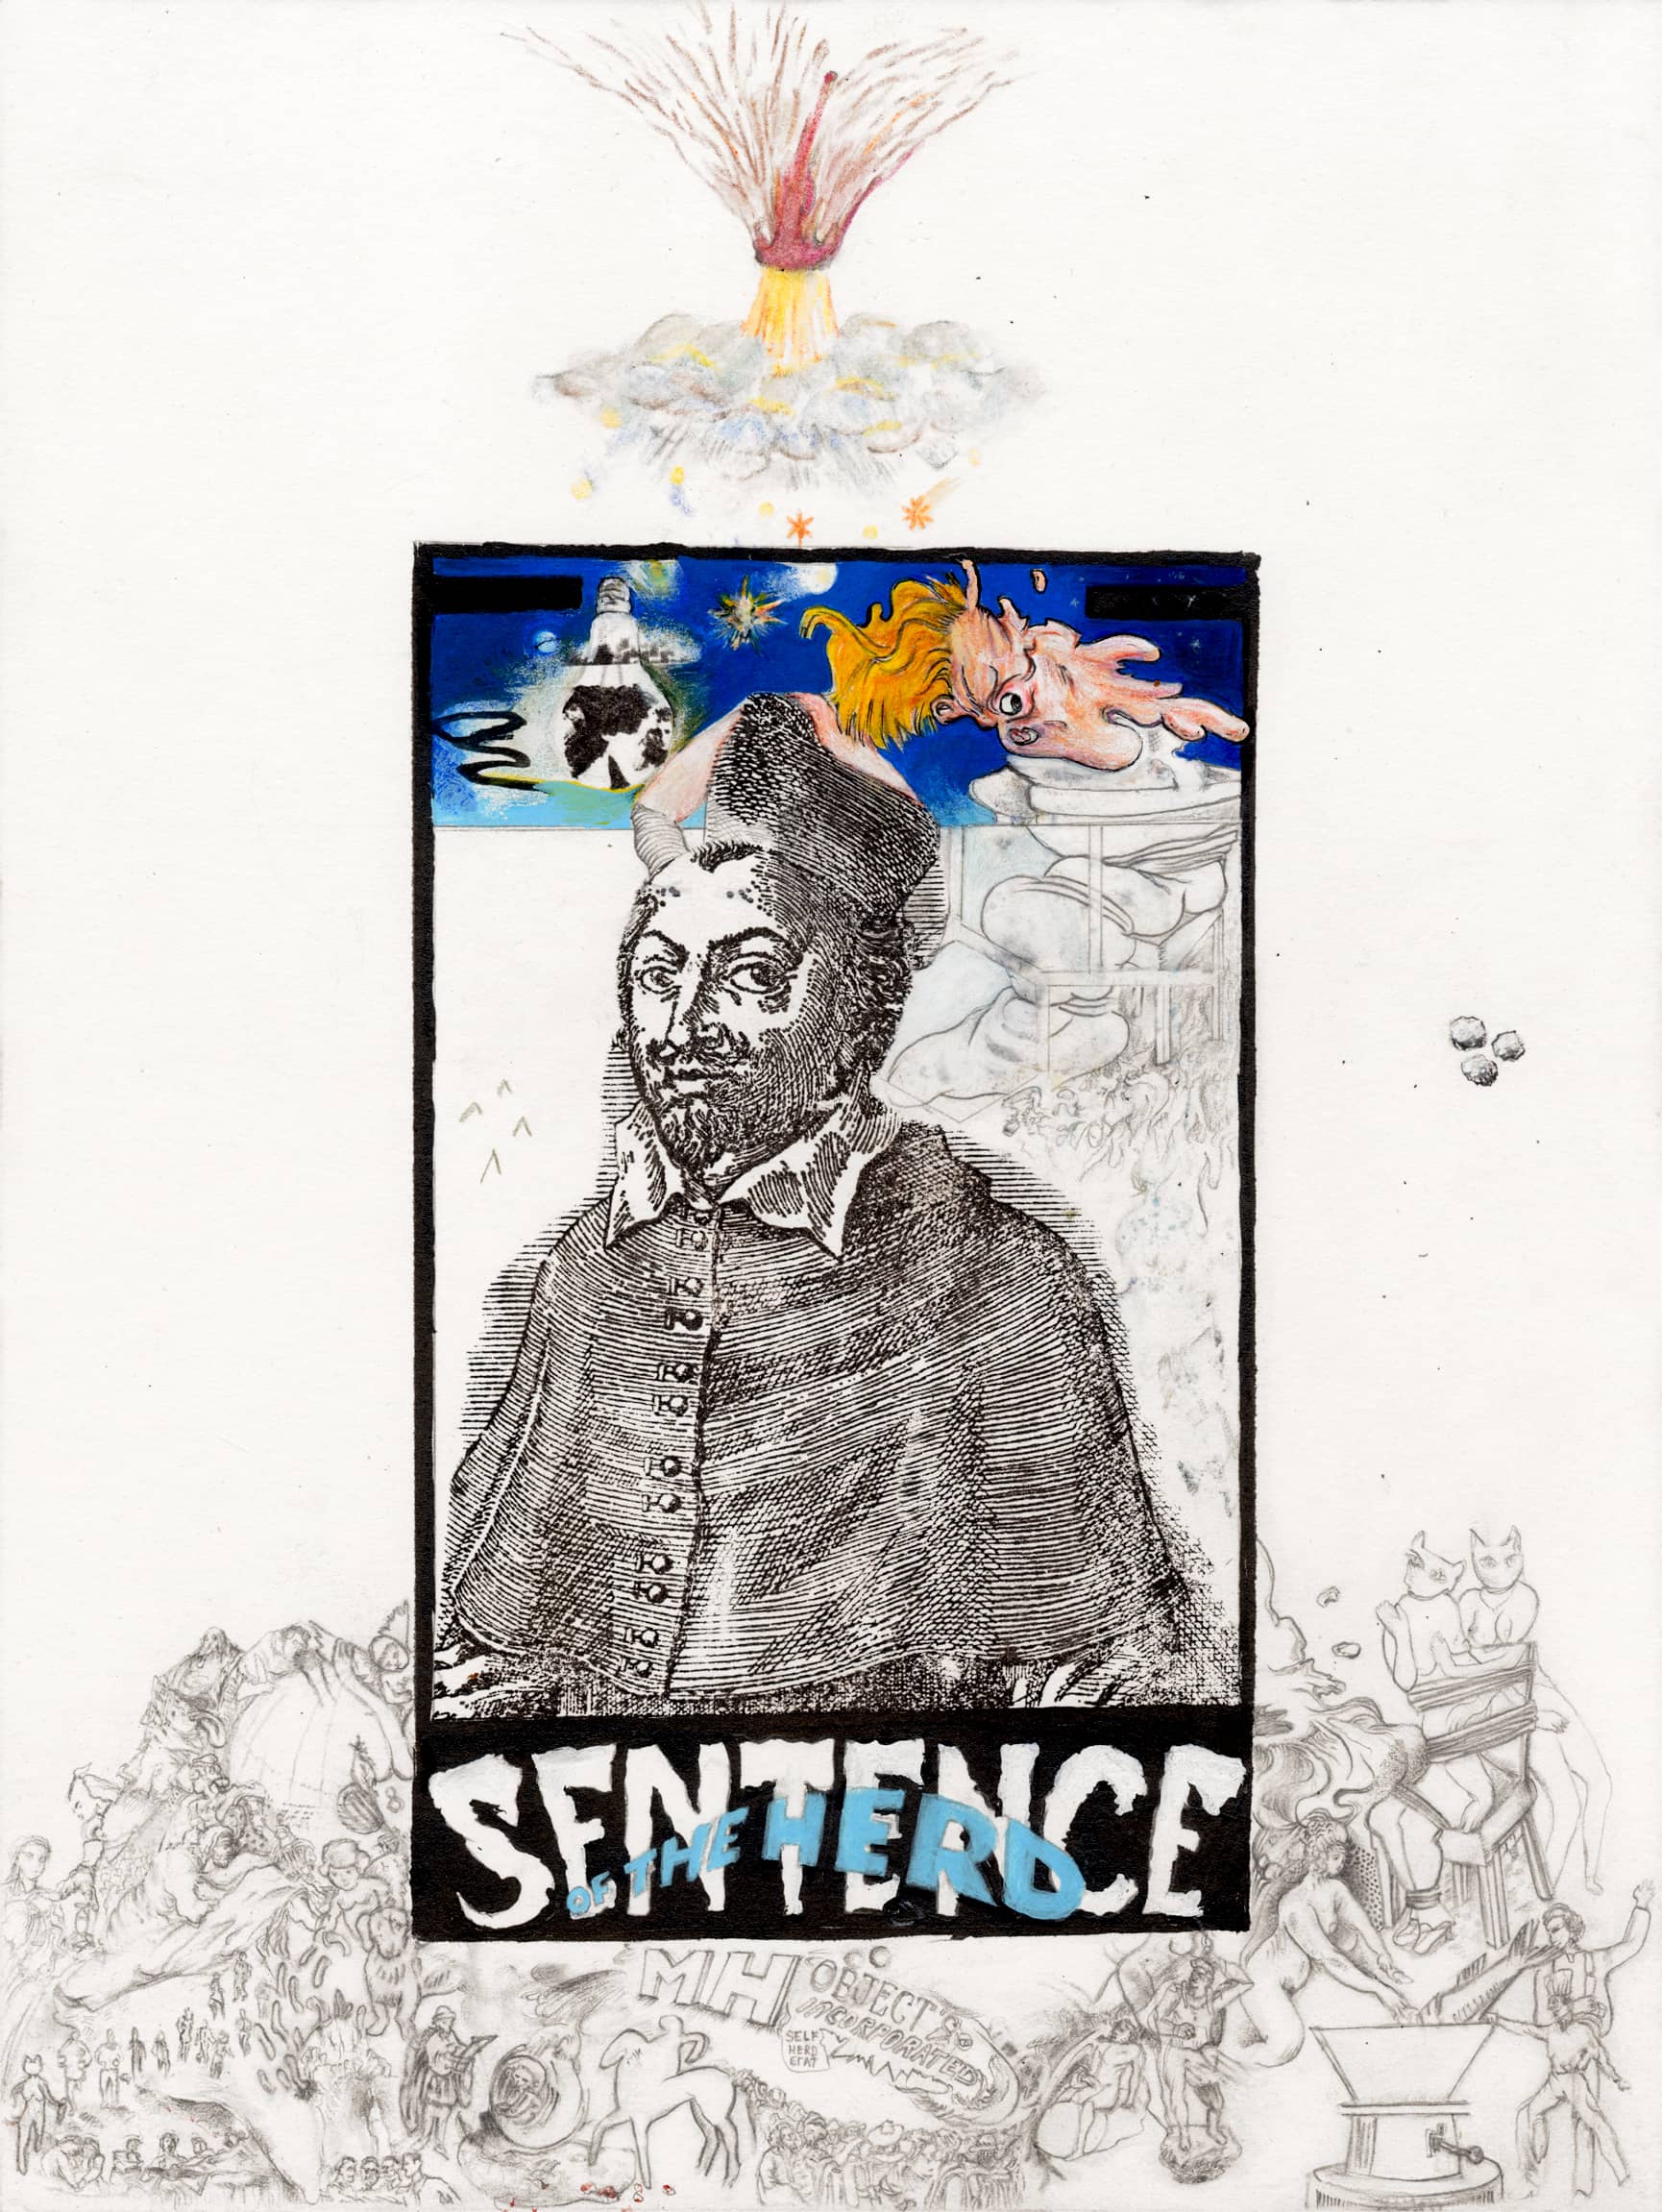 SENTENCE
OF THE HERD
MH
OBJECT
INCORPORATED
SELF
HERD